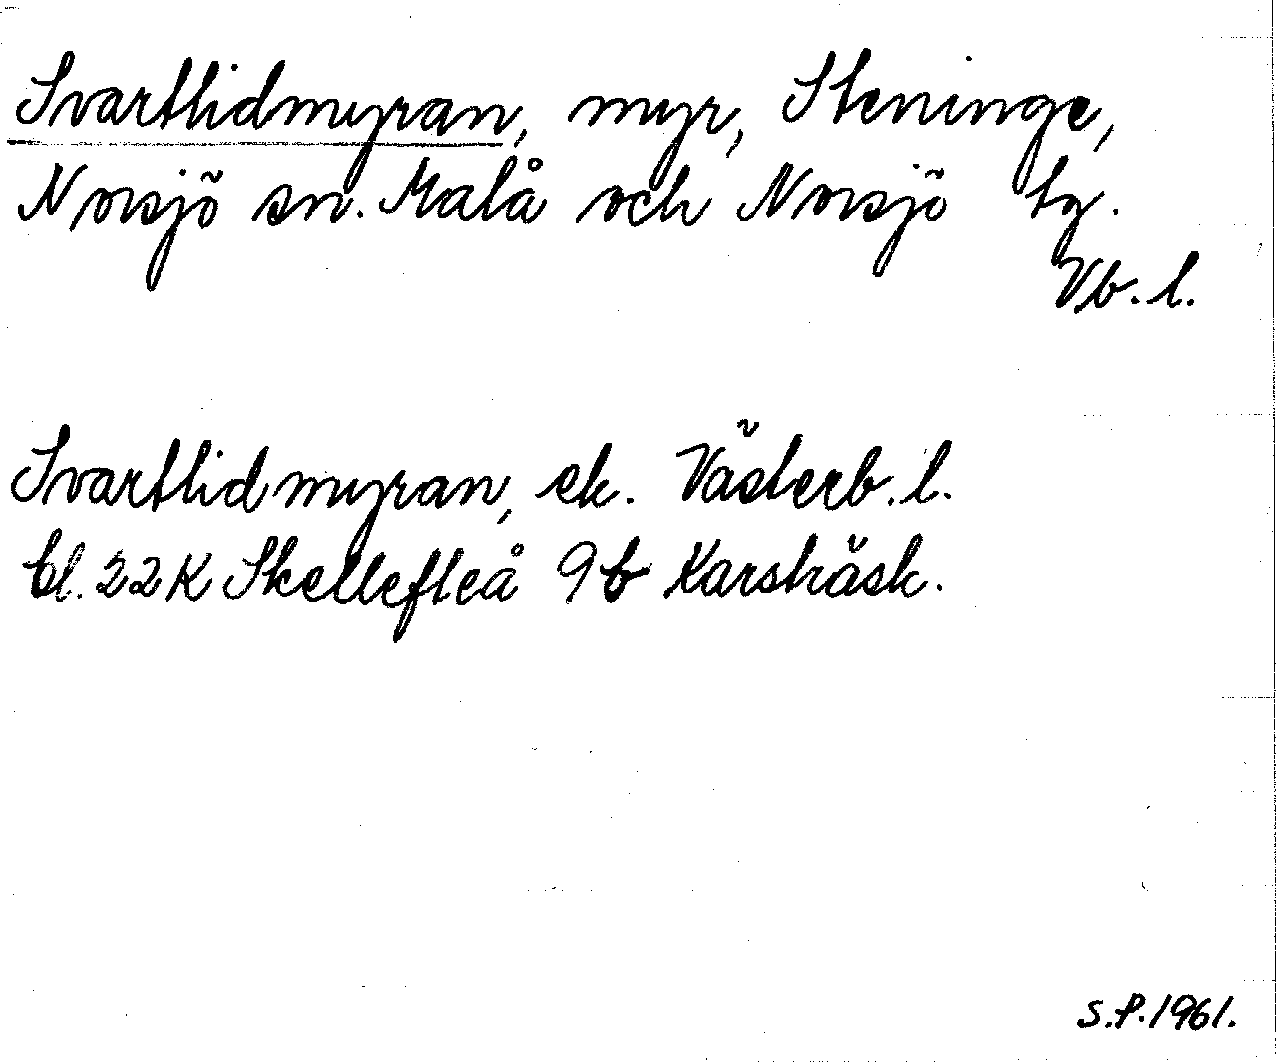 Svartlidmyran, myr, Steninge,
Norsjö sn. Malå och Norsjö tg.
Vb. l.
Svartlidmyran, ek. Västerb. l.
bl. 22K Skellefteå 9b Karsträsk.
S.P. 1961.